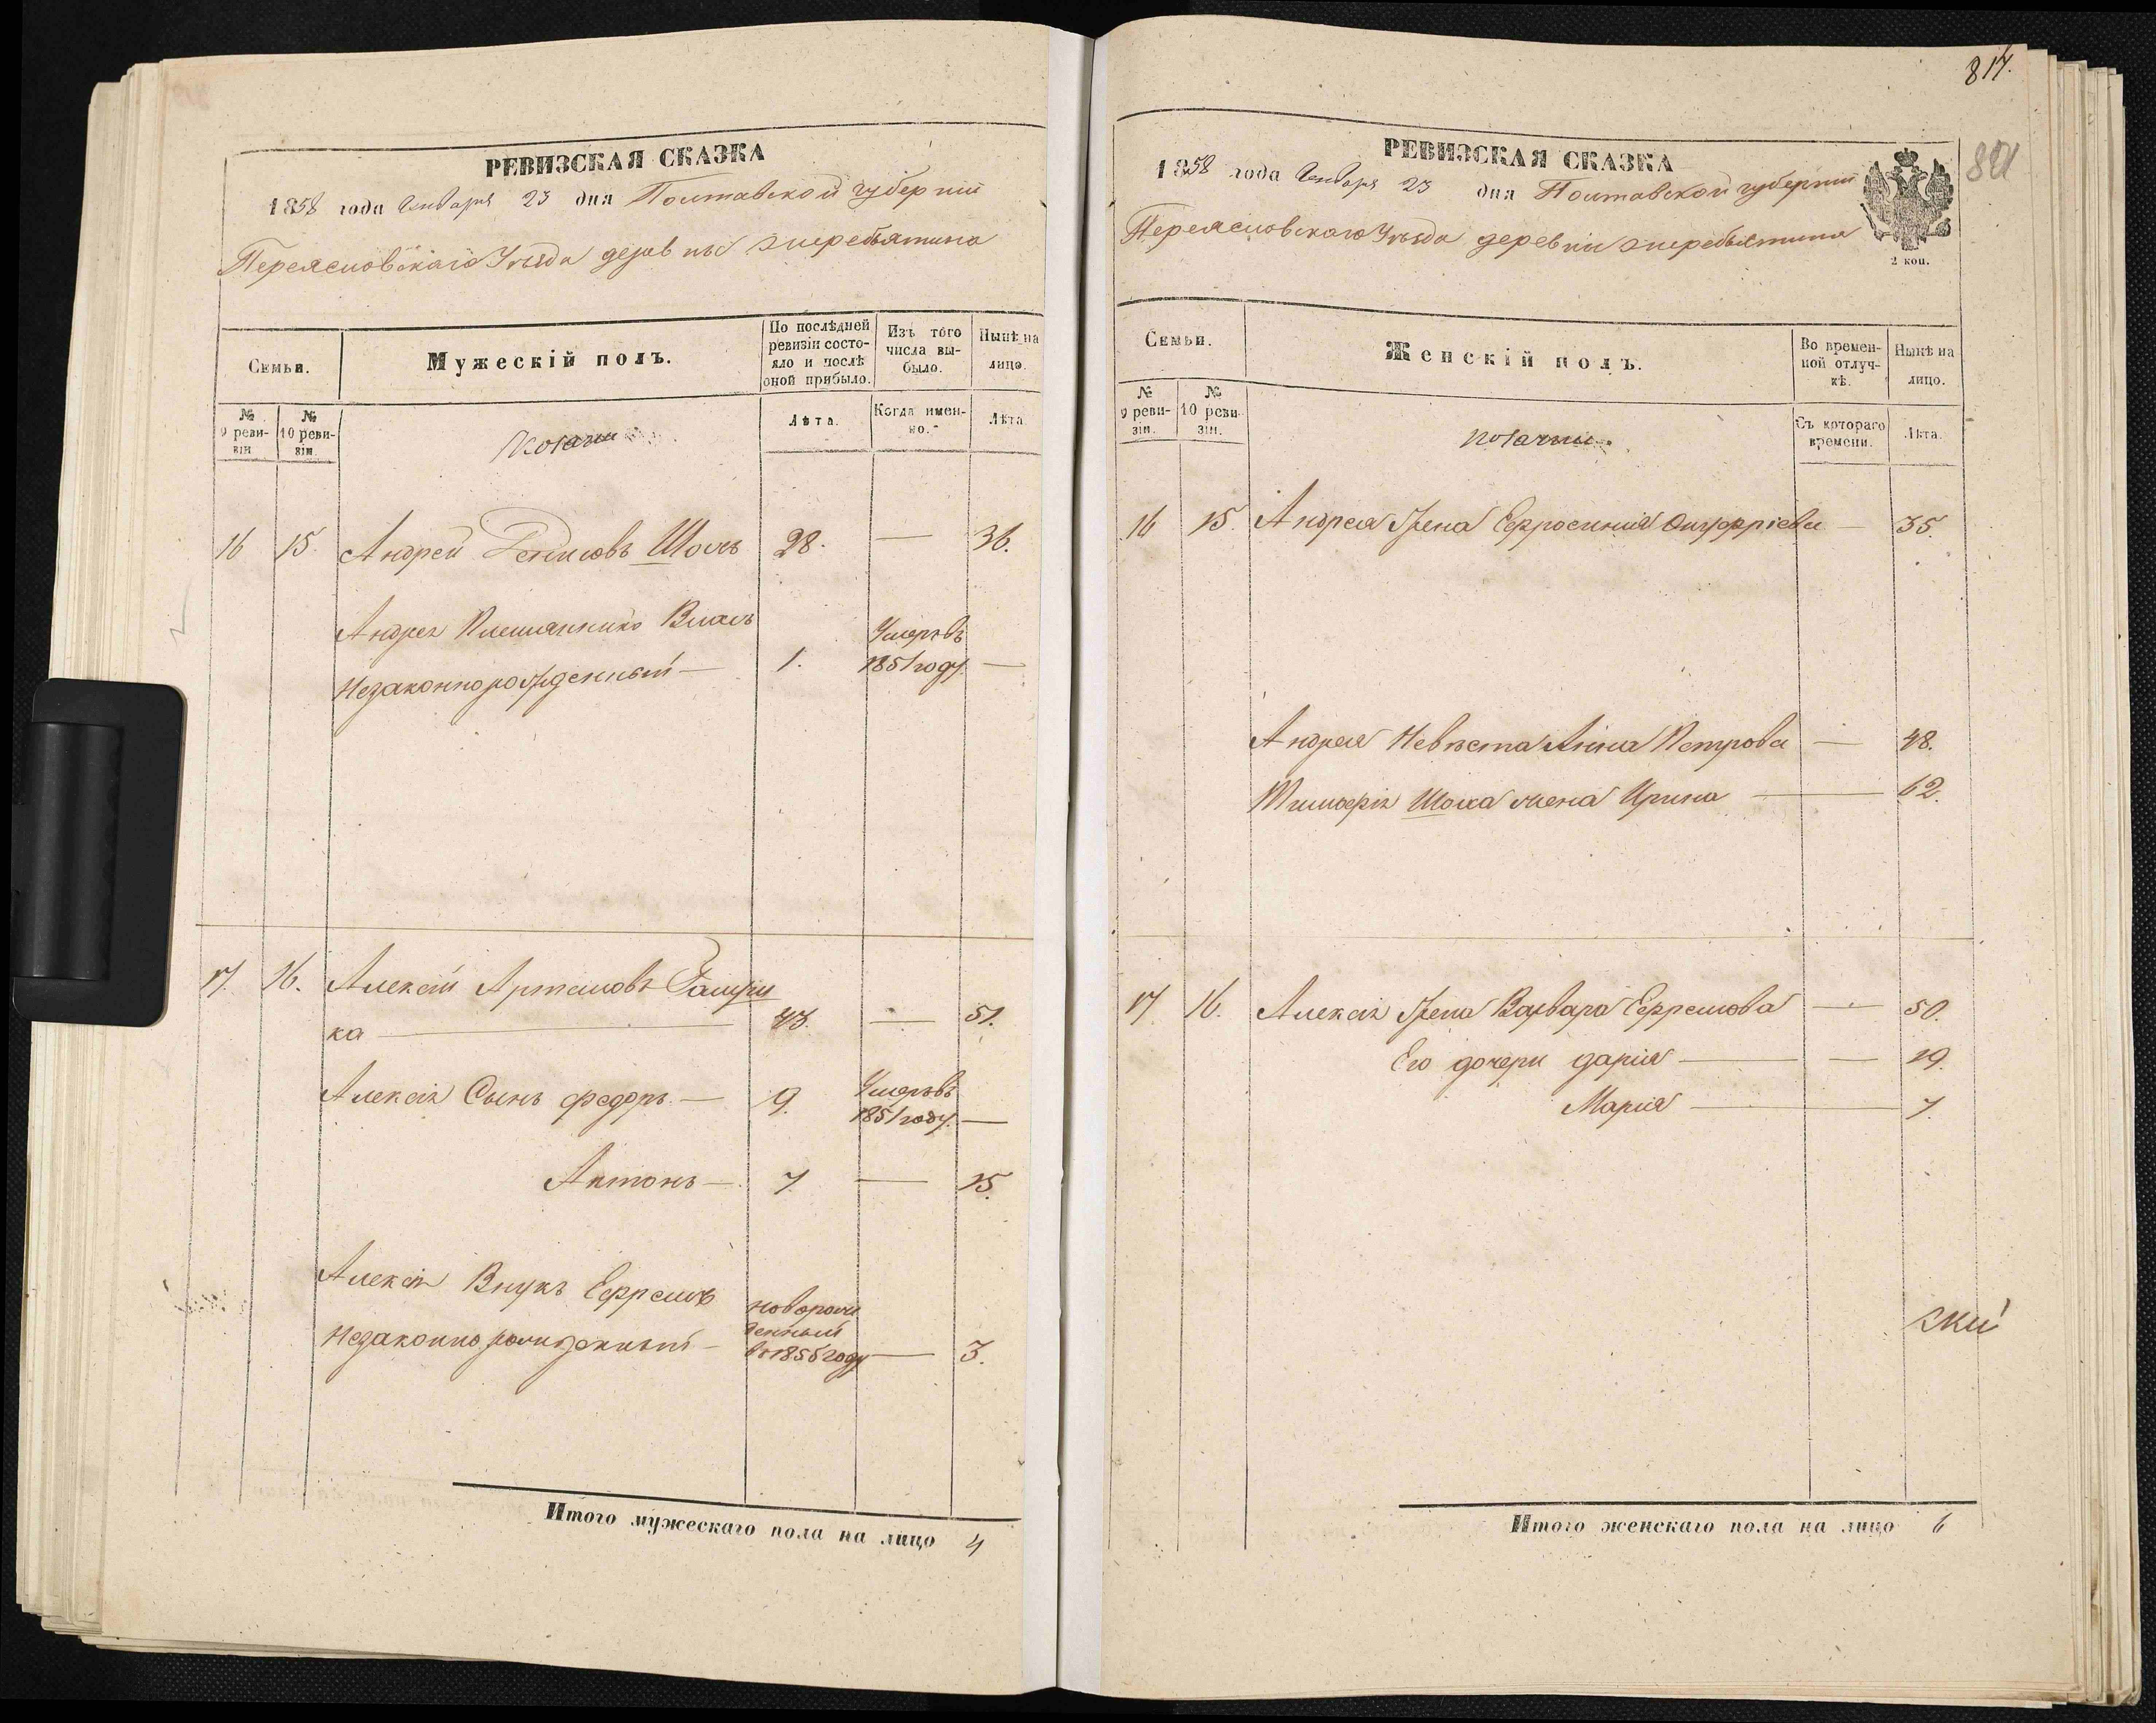 РЕВИЗСКАЯ СКАЗКА
1858 года Января 23 дня Полтавской губерніи
Переяславскаго Уѣзда деревни Жеребятина
Семьи.
Мужескій полъ.
По послѣдней ревизіи состояло и послѣ оной прибыло.
Изъ того числа выбыло.
Нынѣ на лицо.
№ 9 ревизіи
№ 10 ревизіи.
Козаки
Лѣта.
Когда именно.
Лѣта
16 15. Андрей Денисовъ Шолъ 28. — 36.
Андрея Племянникъ Власъ
Незаконнорожденный — 1. Умеръ въ 1851 году. —
17. 16. Алексѣй Артемовъ Галуш
ка — 43. — 51.
Алексѣя Сынъ Федоръ — 9. Умеръ въ 1851 году. —
Антонъ — 7. — 15.
Алексѣя Внукъ Ефремъ
Незаконнорожденный — новорожденный въ 1855 году — 3.
Итого мужескаго пола на лицо 4
817.
821
РЕВИЗСКАЯ СКАЗКА
1858 года Января 23 дня Полтавской губерніи
Переяславскаго Уѣзда деревни Жеребятина
2 коп.
Семьи.
Женскій полъ.
Во временной отлучкѣ.
Нынѣ на лицо.
№ 9 ревизіи.
№ 10 ревизіи.
Козачки
Съ котораго времени.
Лѣта.
16 15. Андрея Жена Ефросинія Онуфріева — 35.
Андрея Невѣста Анна Петрова — 48.
Тимофѣя Шола жена Ирина — 62.
17. 16. Алексѣя Жена Варвара Ефремова — 50.
Его дочери Дарія — — 19.
Марія — 7.
скій
Итого женскаго пола на лицо 6